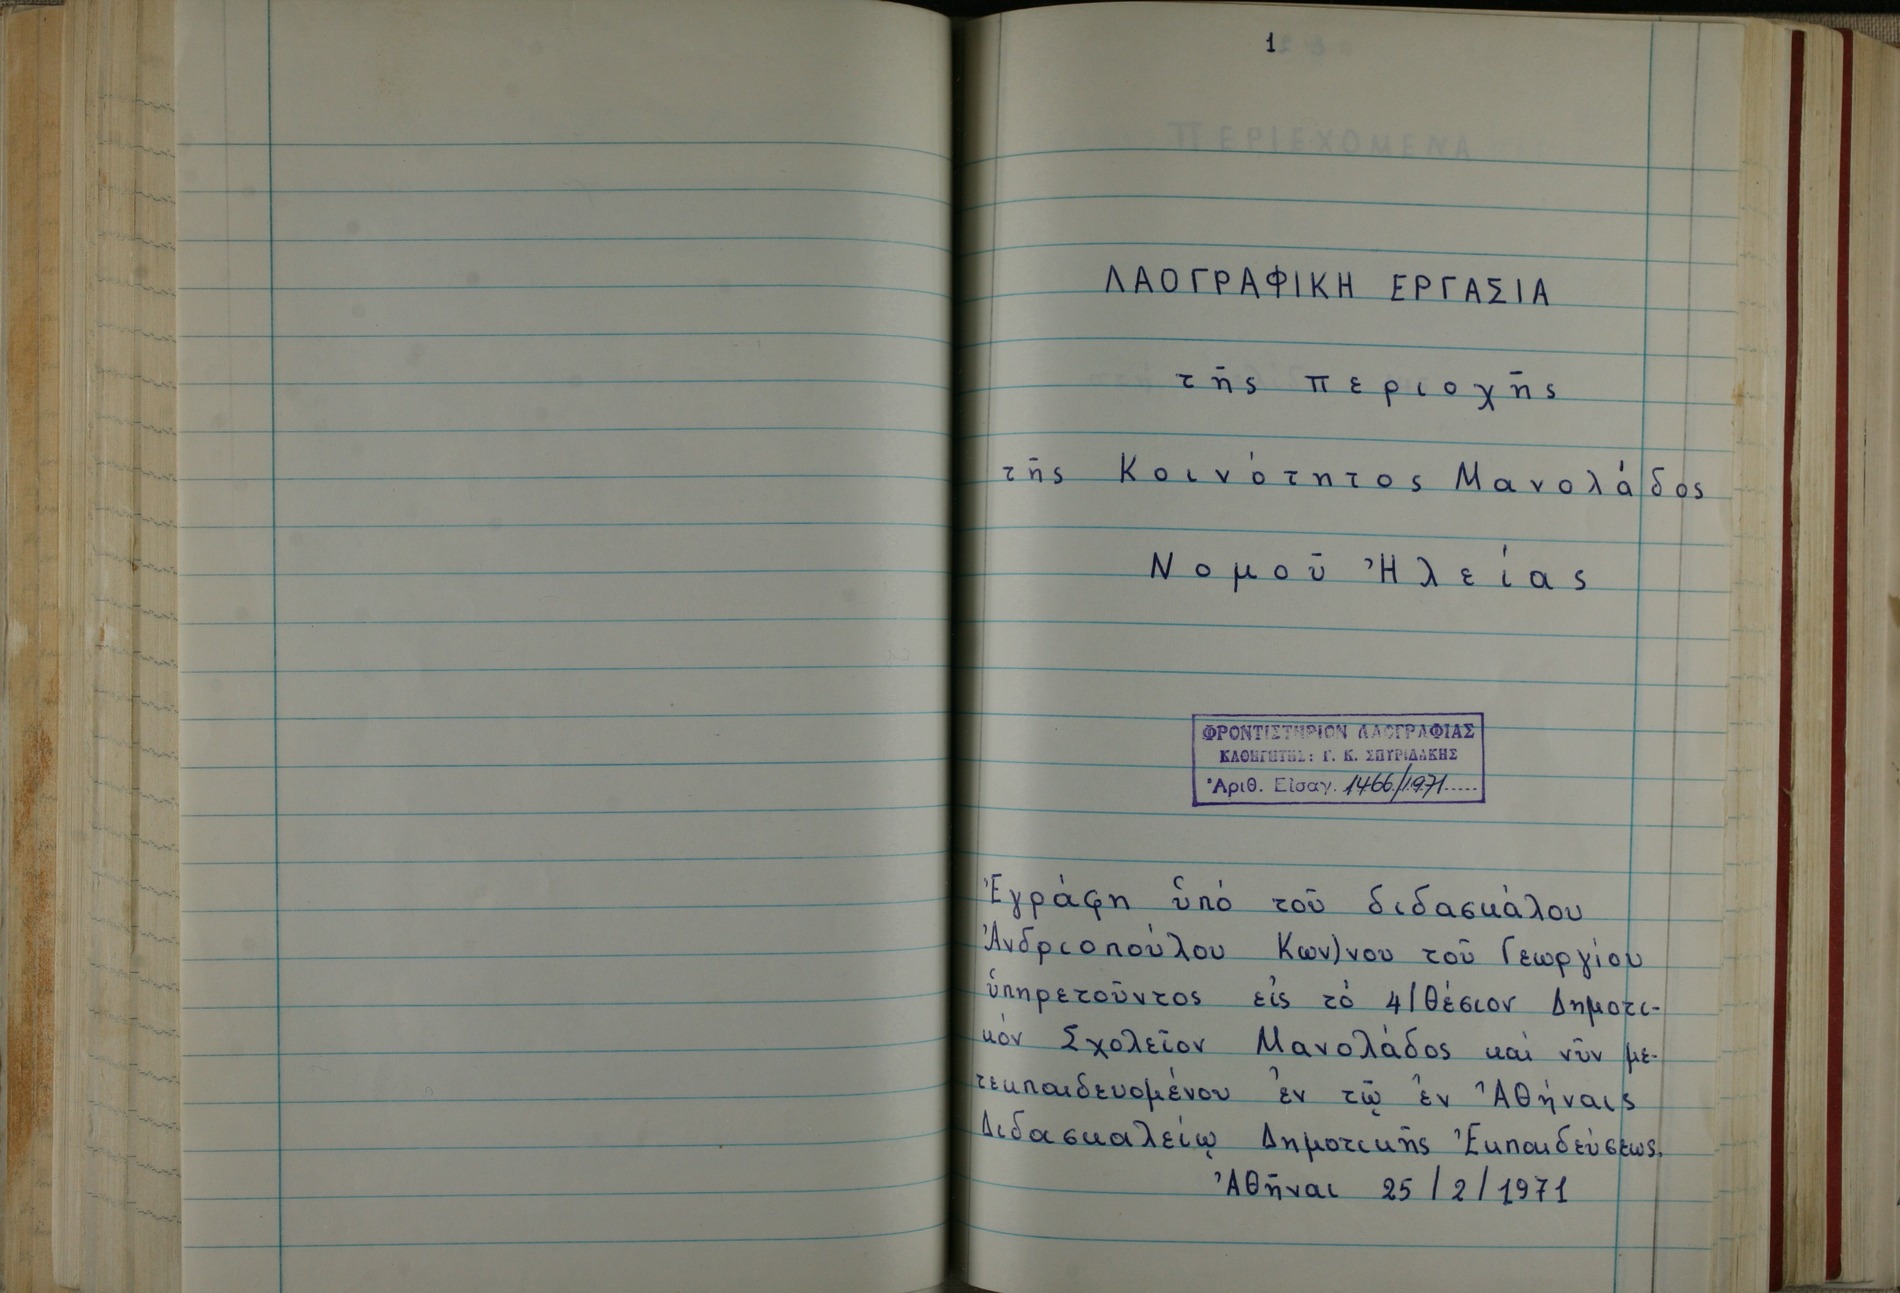 1
ΛΑΟΓΡΑΦΙΚΗ ΕΡΓΑΣΙΑ
τῆς περιοχῆς
τῆς Κοινότητος Μανολάδος
Νομοῦ Ἠλείας
ΦΡΟΝΤΙΣΤΗΡΙΟΝ ΛΑΟΓΡΑΦΙΑΣ
ΚΑΘΗΓΗΤΗΣ: Γ. Κ. ΣΠΥΡΙΔΑΚΗΣ
Ἀριθ. Εἰσαγ. 1466/1971
Ἐγράφη ὑπό τοῦ διδασκάλου
Ἀνδριοπούλου Κων)νου τοῦ Γεωργίου
ὑπηρετοῦντος εἰς τό 4/θέσιον Δημοτι-
κόν Σχολεῖον Μανολάδος καί νῦν με-
τεκπαιδευομένου ἐν τῷ ἐν Ἀθήναις
Διδασκαλείῳ Δημοτικῆς Ἐκπαιδεύσεως.
Ἀθῆναι 25/2/1971